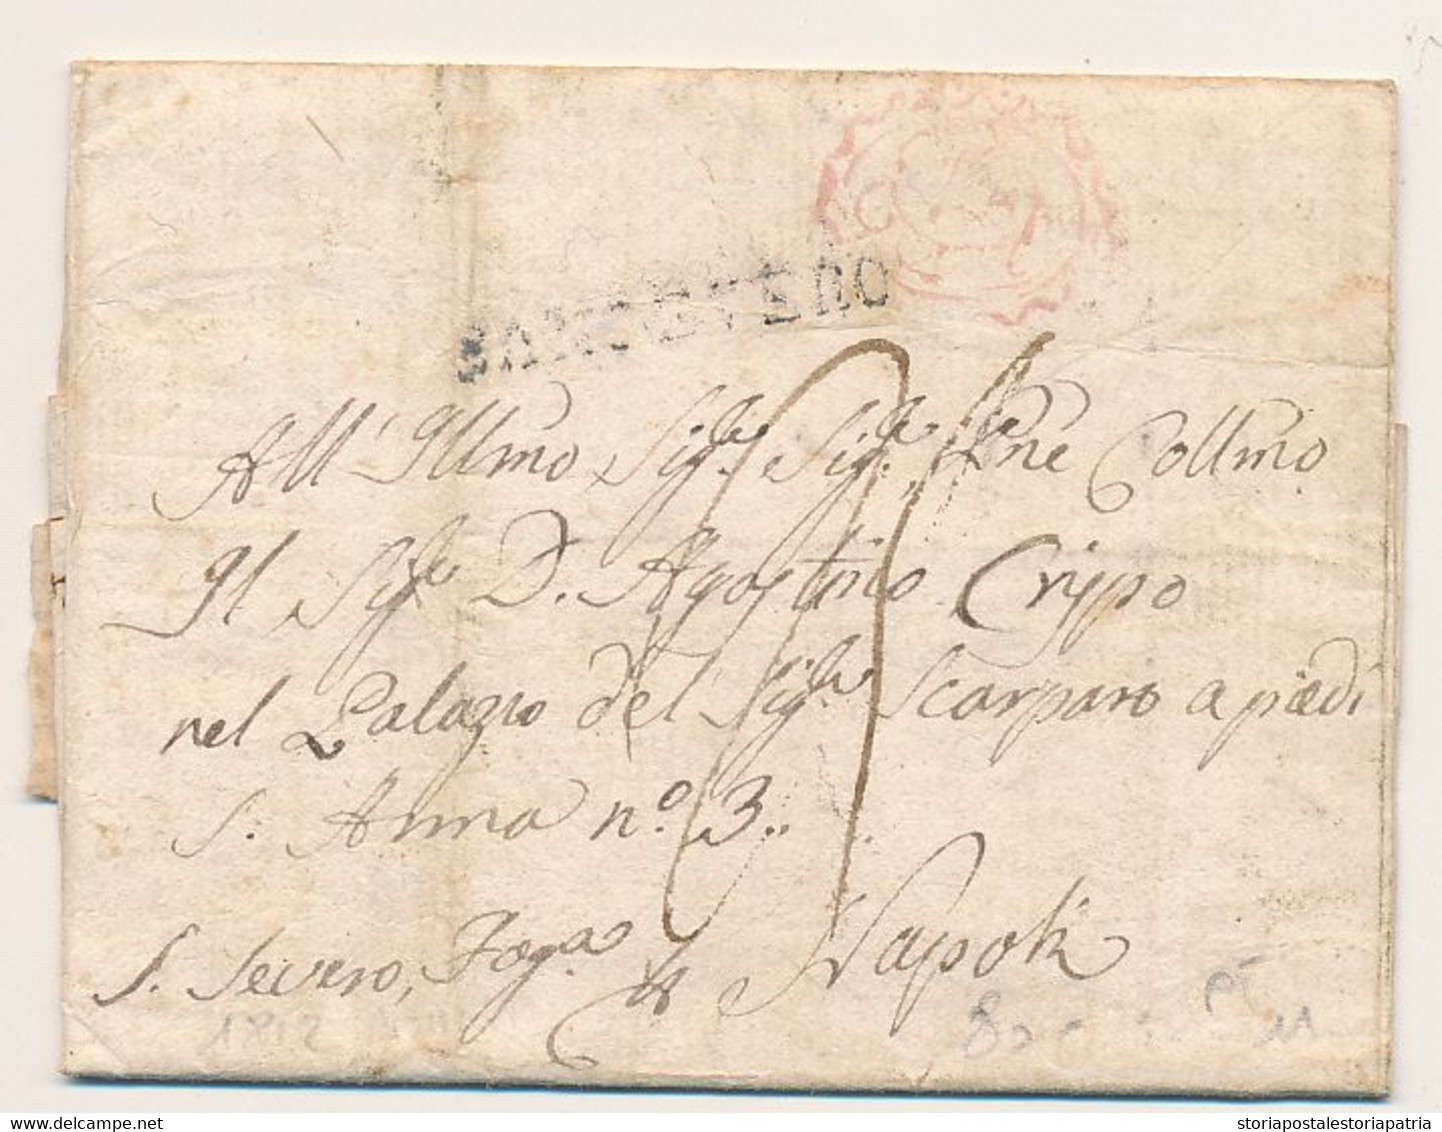 SANSEVERO
All' Illmo Sig.re Sig.re Pne Collmo
Il Sig.re D. Agostino Crispo
nel Palazzo del Sig.re Scarparo a piedi
S. Anna n.o 3..
S. Severo, Fog.a a Napoli
1812
80
11
storiapostalestoriapatria